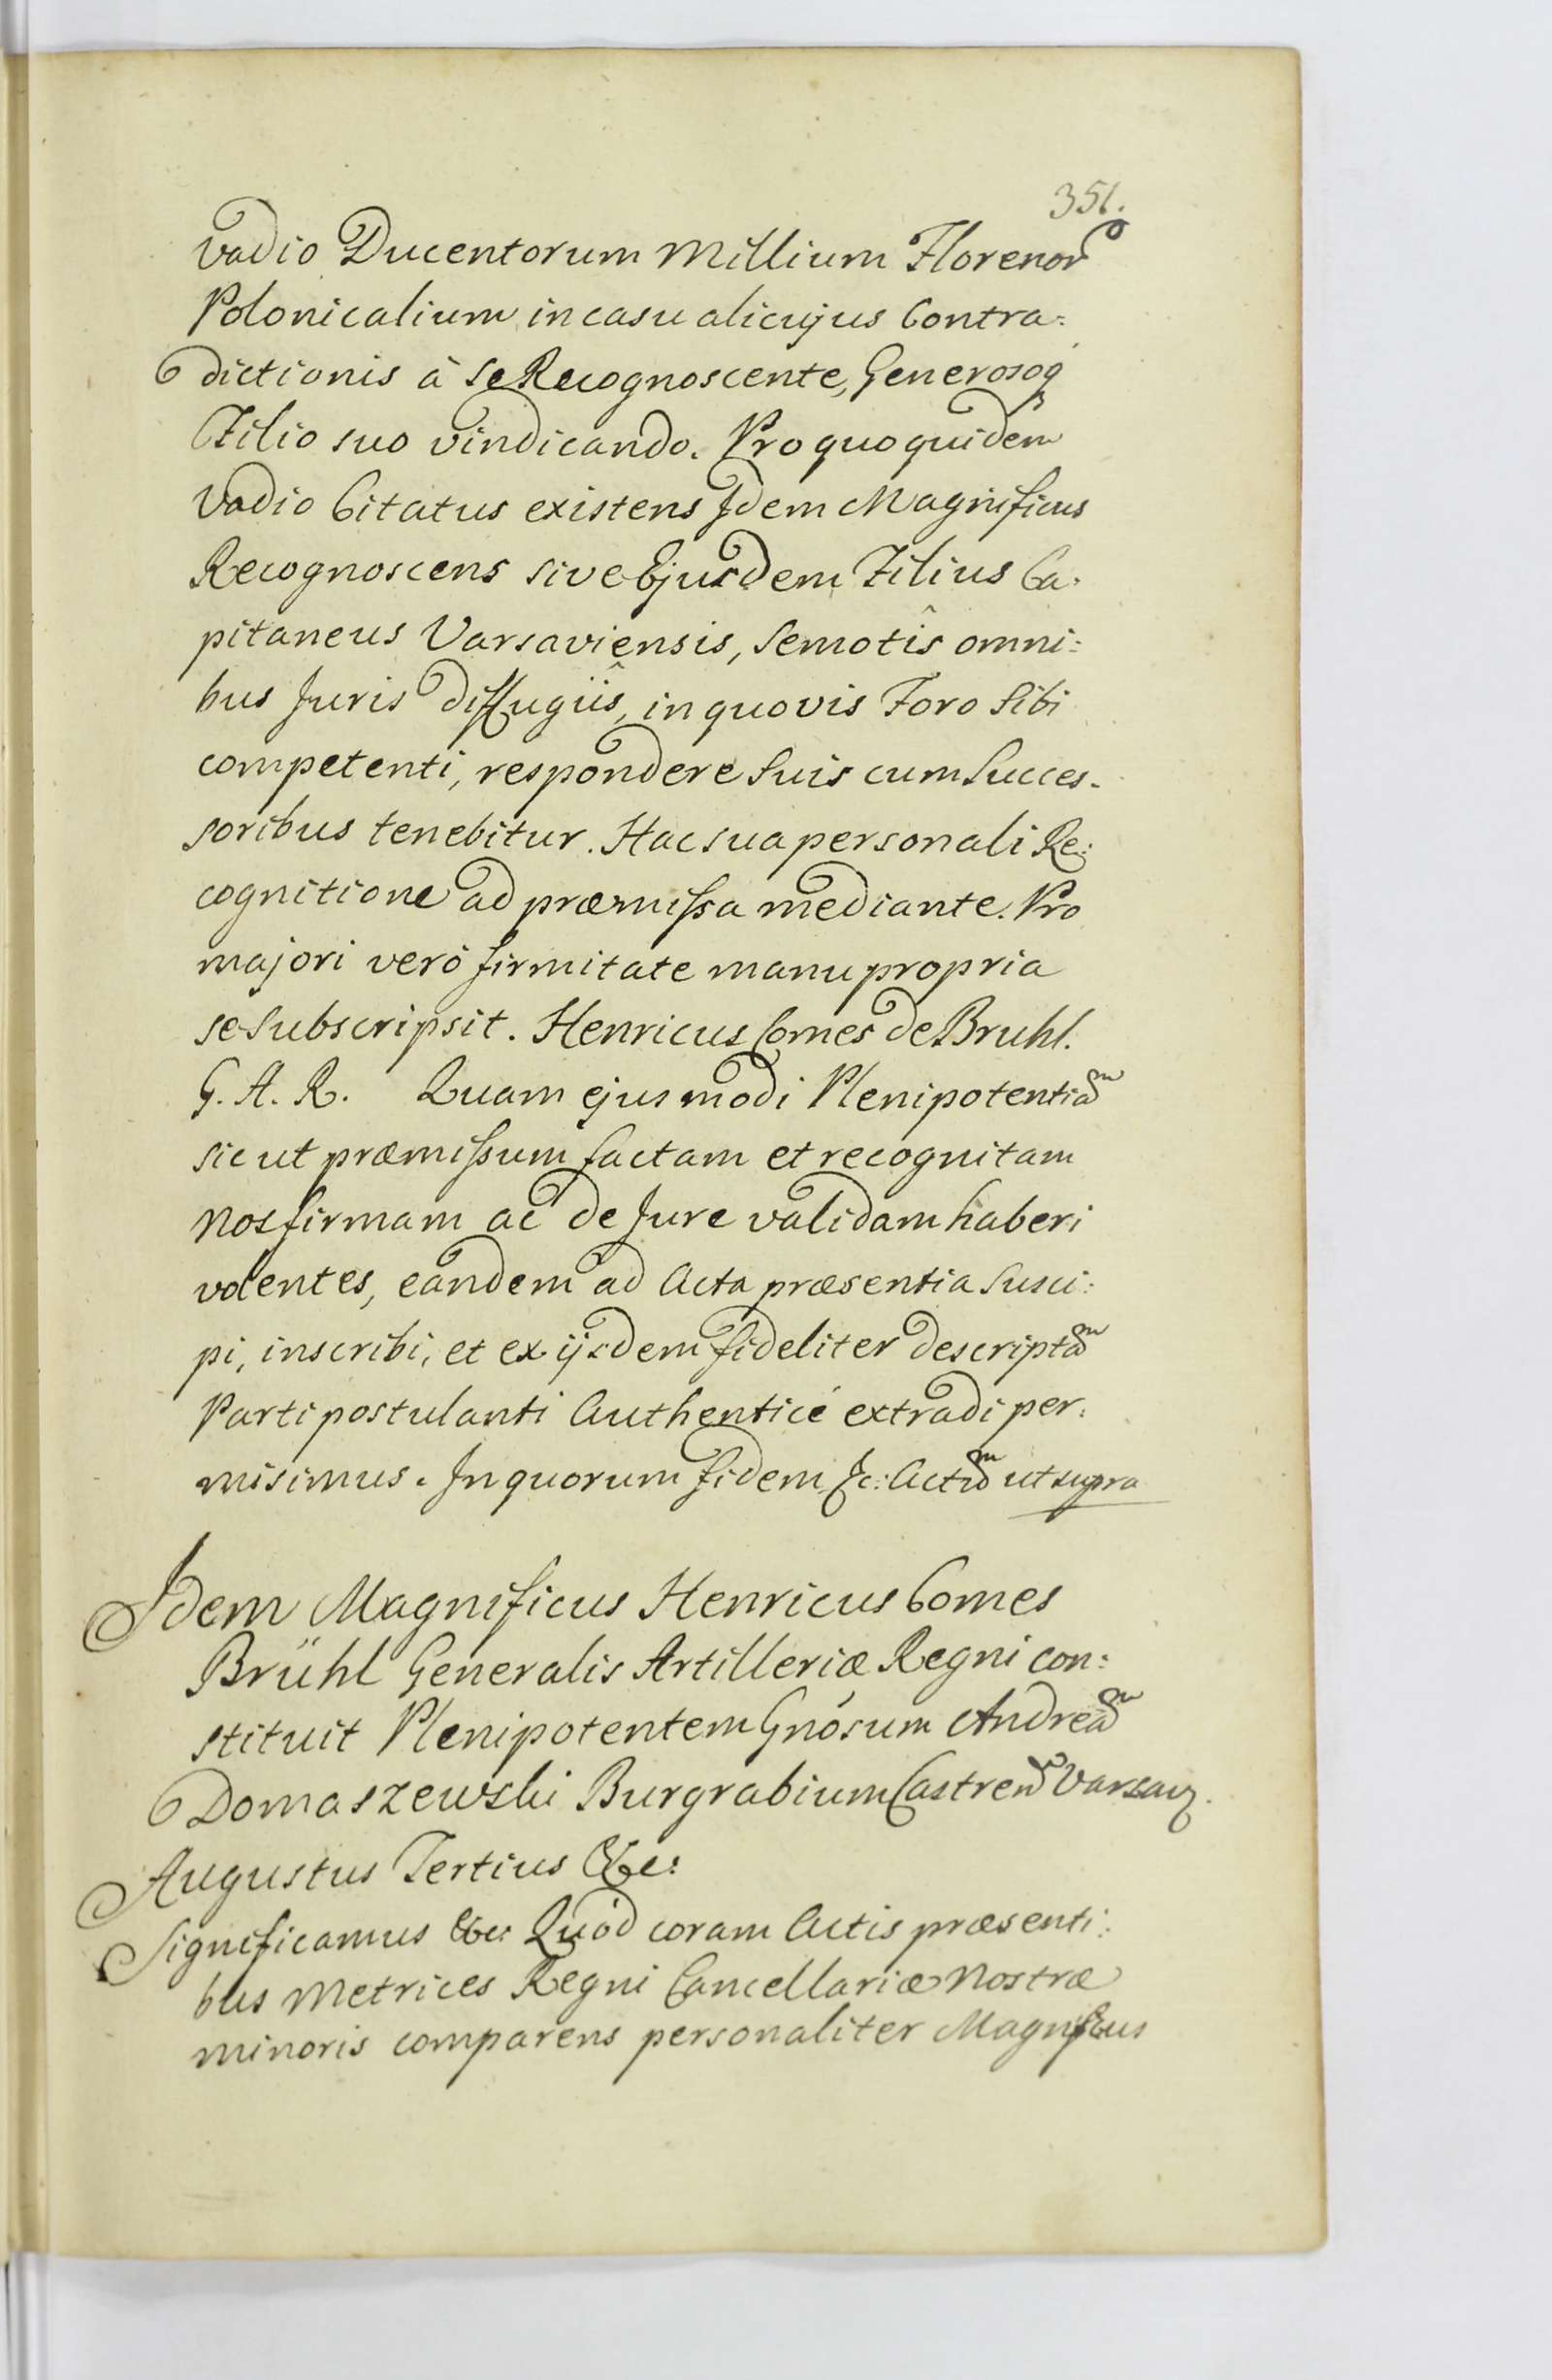 351.
Vadio Ducentorum Millium Florenor
Polonicalium in casu alicujus Contra:
dictionis à Se Recognoscente, Generosoq
Filio suo vindicando. Pro quo quidem
Vadio Citatus existens Idem Magnificus
Recognoscens sive Ejusdem Filius Ca:
pitaneus Varsaviensis, Semotîs omni:
bus Juris diffugiîs, in quovis Foro Sibi
competenti, respondere Suis cum Succes-
soribus tenebitur. Hac sua personali Re:
cognitione ad præmissa mediante. Pro
majori verò firmitate manu propria
se Subscripsit. Henricus Comes de Bruhl.
G. A. R. Quam ejusmodi Plenipotentiam
sic ut præmissum factam et recognitam
Nos firmam ac de Jure validam haberi
volentes, eandem ad Acta præsentia Susci:
pi, inscribi, et ex ijsdem fideliter descriptam
Parti postulanti Authenticè extradi per:
misimus. In quorum fidem &c: Actum ut supra
Idem Magnificus Henricus Comes
Brühl Generalis Artilleriæ Regni con:
stituit Plenipotentem Gnósum Andream
Domaszewski Burgrabium Castren Varsav.
Augustus Tertius &c:
Significamus &c: Quòd coram Actis præsenti:
bus Metrices Regni Cancellariæ Nostræ
minoris comparens personaliter Magnificus